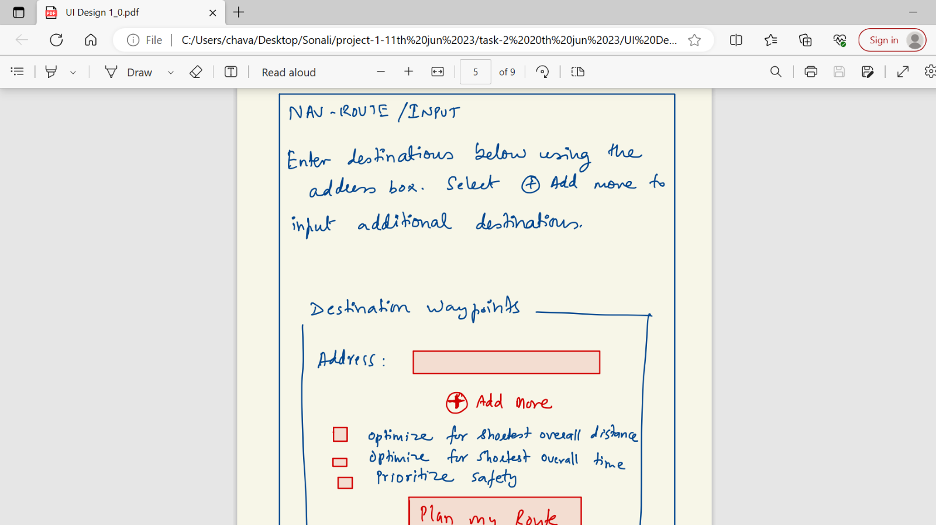 UI Design 1_0.pdf
File
C:/Users/chava/Desktop/Sonali/project-1-11th%20jun%2023/task-2%2020th%20jun%2023/UI%20De...
Sign in
Draw
Read aloud
5 of 9
NAV-ROUTE/INPUT
Enter destinations below using the
address box. Select + Add more to
input additional destinations.
Destination Waypoints
Address:
+ Add More
optimize for shortest overall distance
optimize for shortest overall time
Prioritize safety
Plan my Route